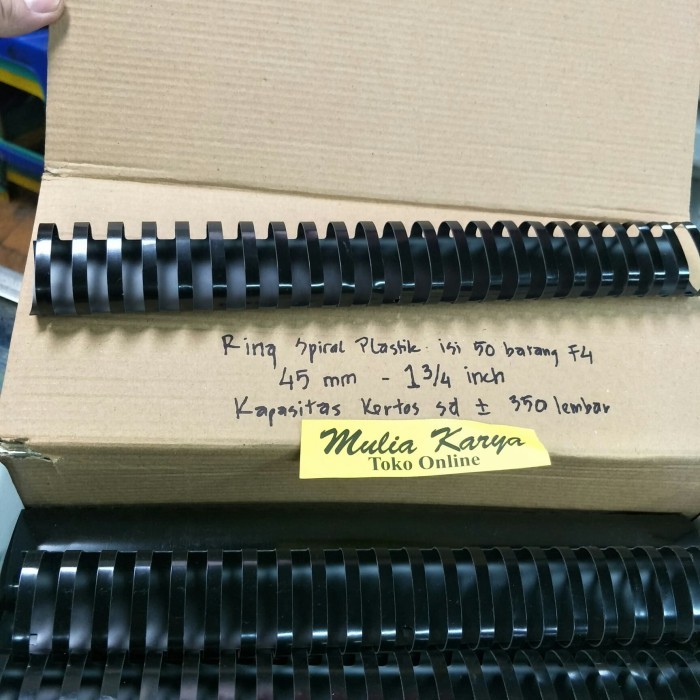 Ring Spiral Plastik isi 50 batang F4
45 mm - 1 3/4 inch
Kapasitas Kertas sd ± 350 lembar
Mulia Karya
Toko Online